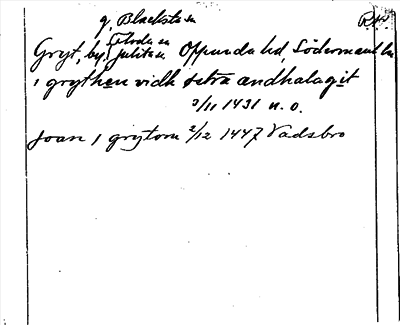 g. Blacksta sn
Floda sn
Gryt, by, Julita sn Oppunda hd, Södermanl. län
i grythen vidh setra andhalagit
3/11 1431 n. o.
Joan i grytom 2/12 1447 Vadsbro